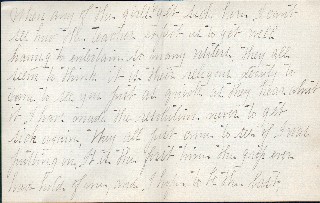 When any of the girls get sick here, I can't
see how the teachers expect us to get well
having to entertain so many visitors. They all
seem to think it is their religious duty to
come to see you just as quick as they hear about
it. I have made the resolution never to get
sick again. They all just came to see if I was
putting on. It is the first time the grip ever
has hold of me, and I hope to be the last.